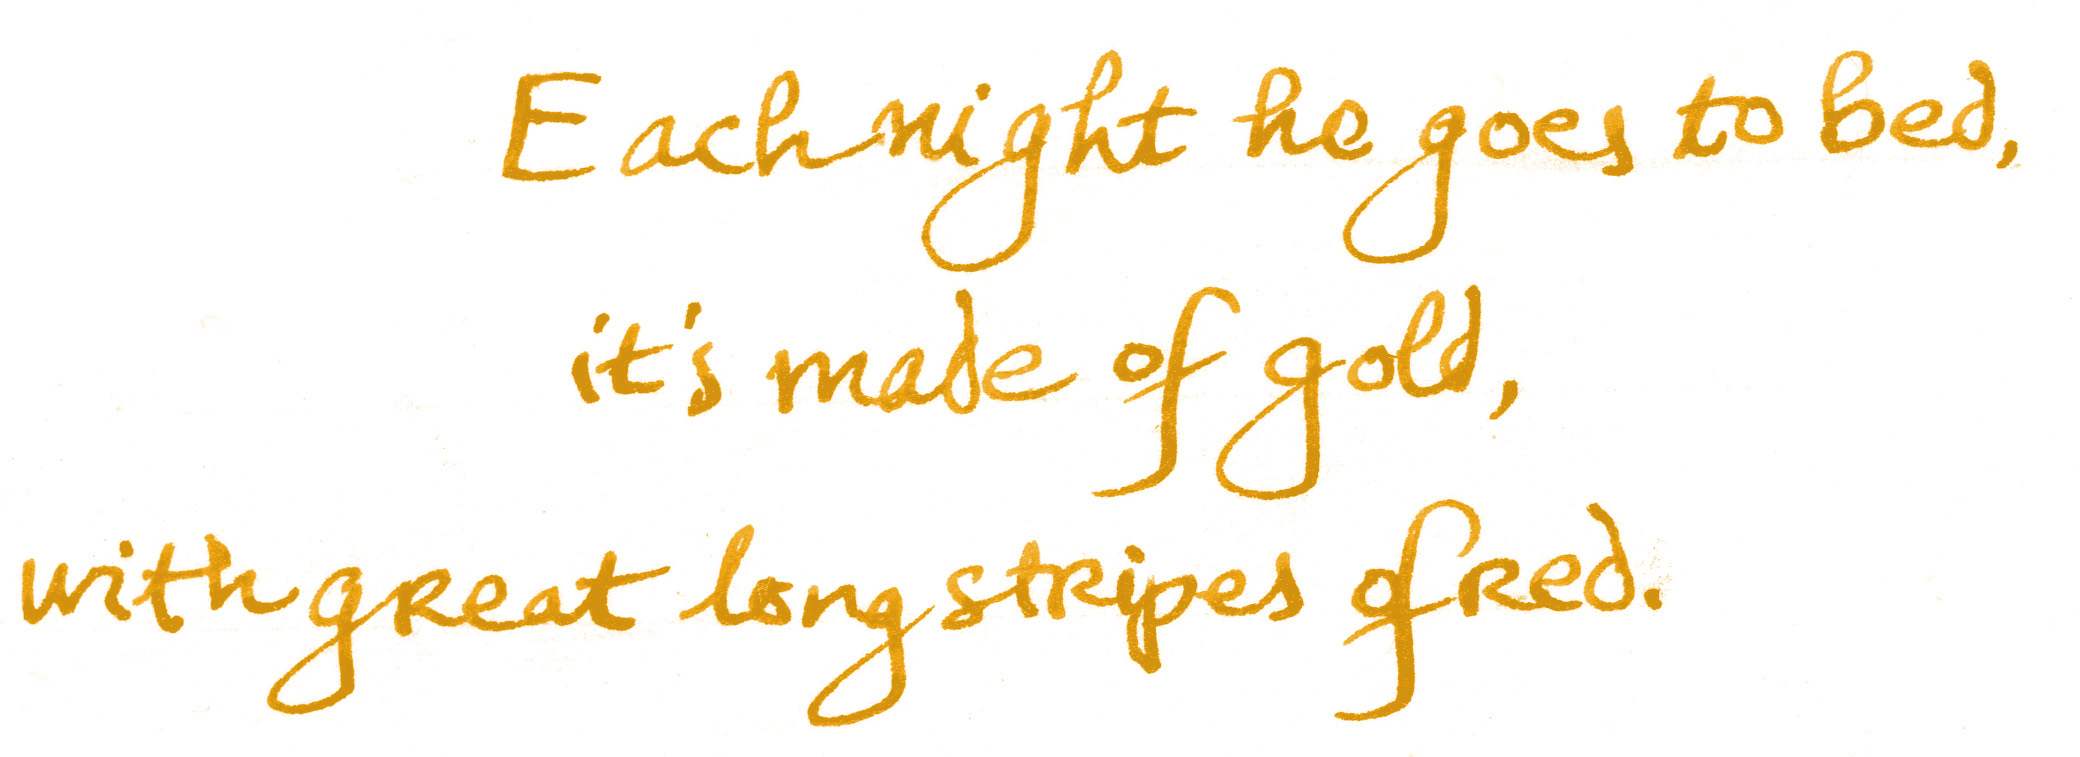 Each night he goes to bed,
it's made of gold,
with great long stripes of red.